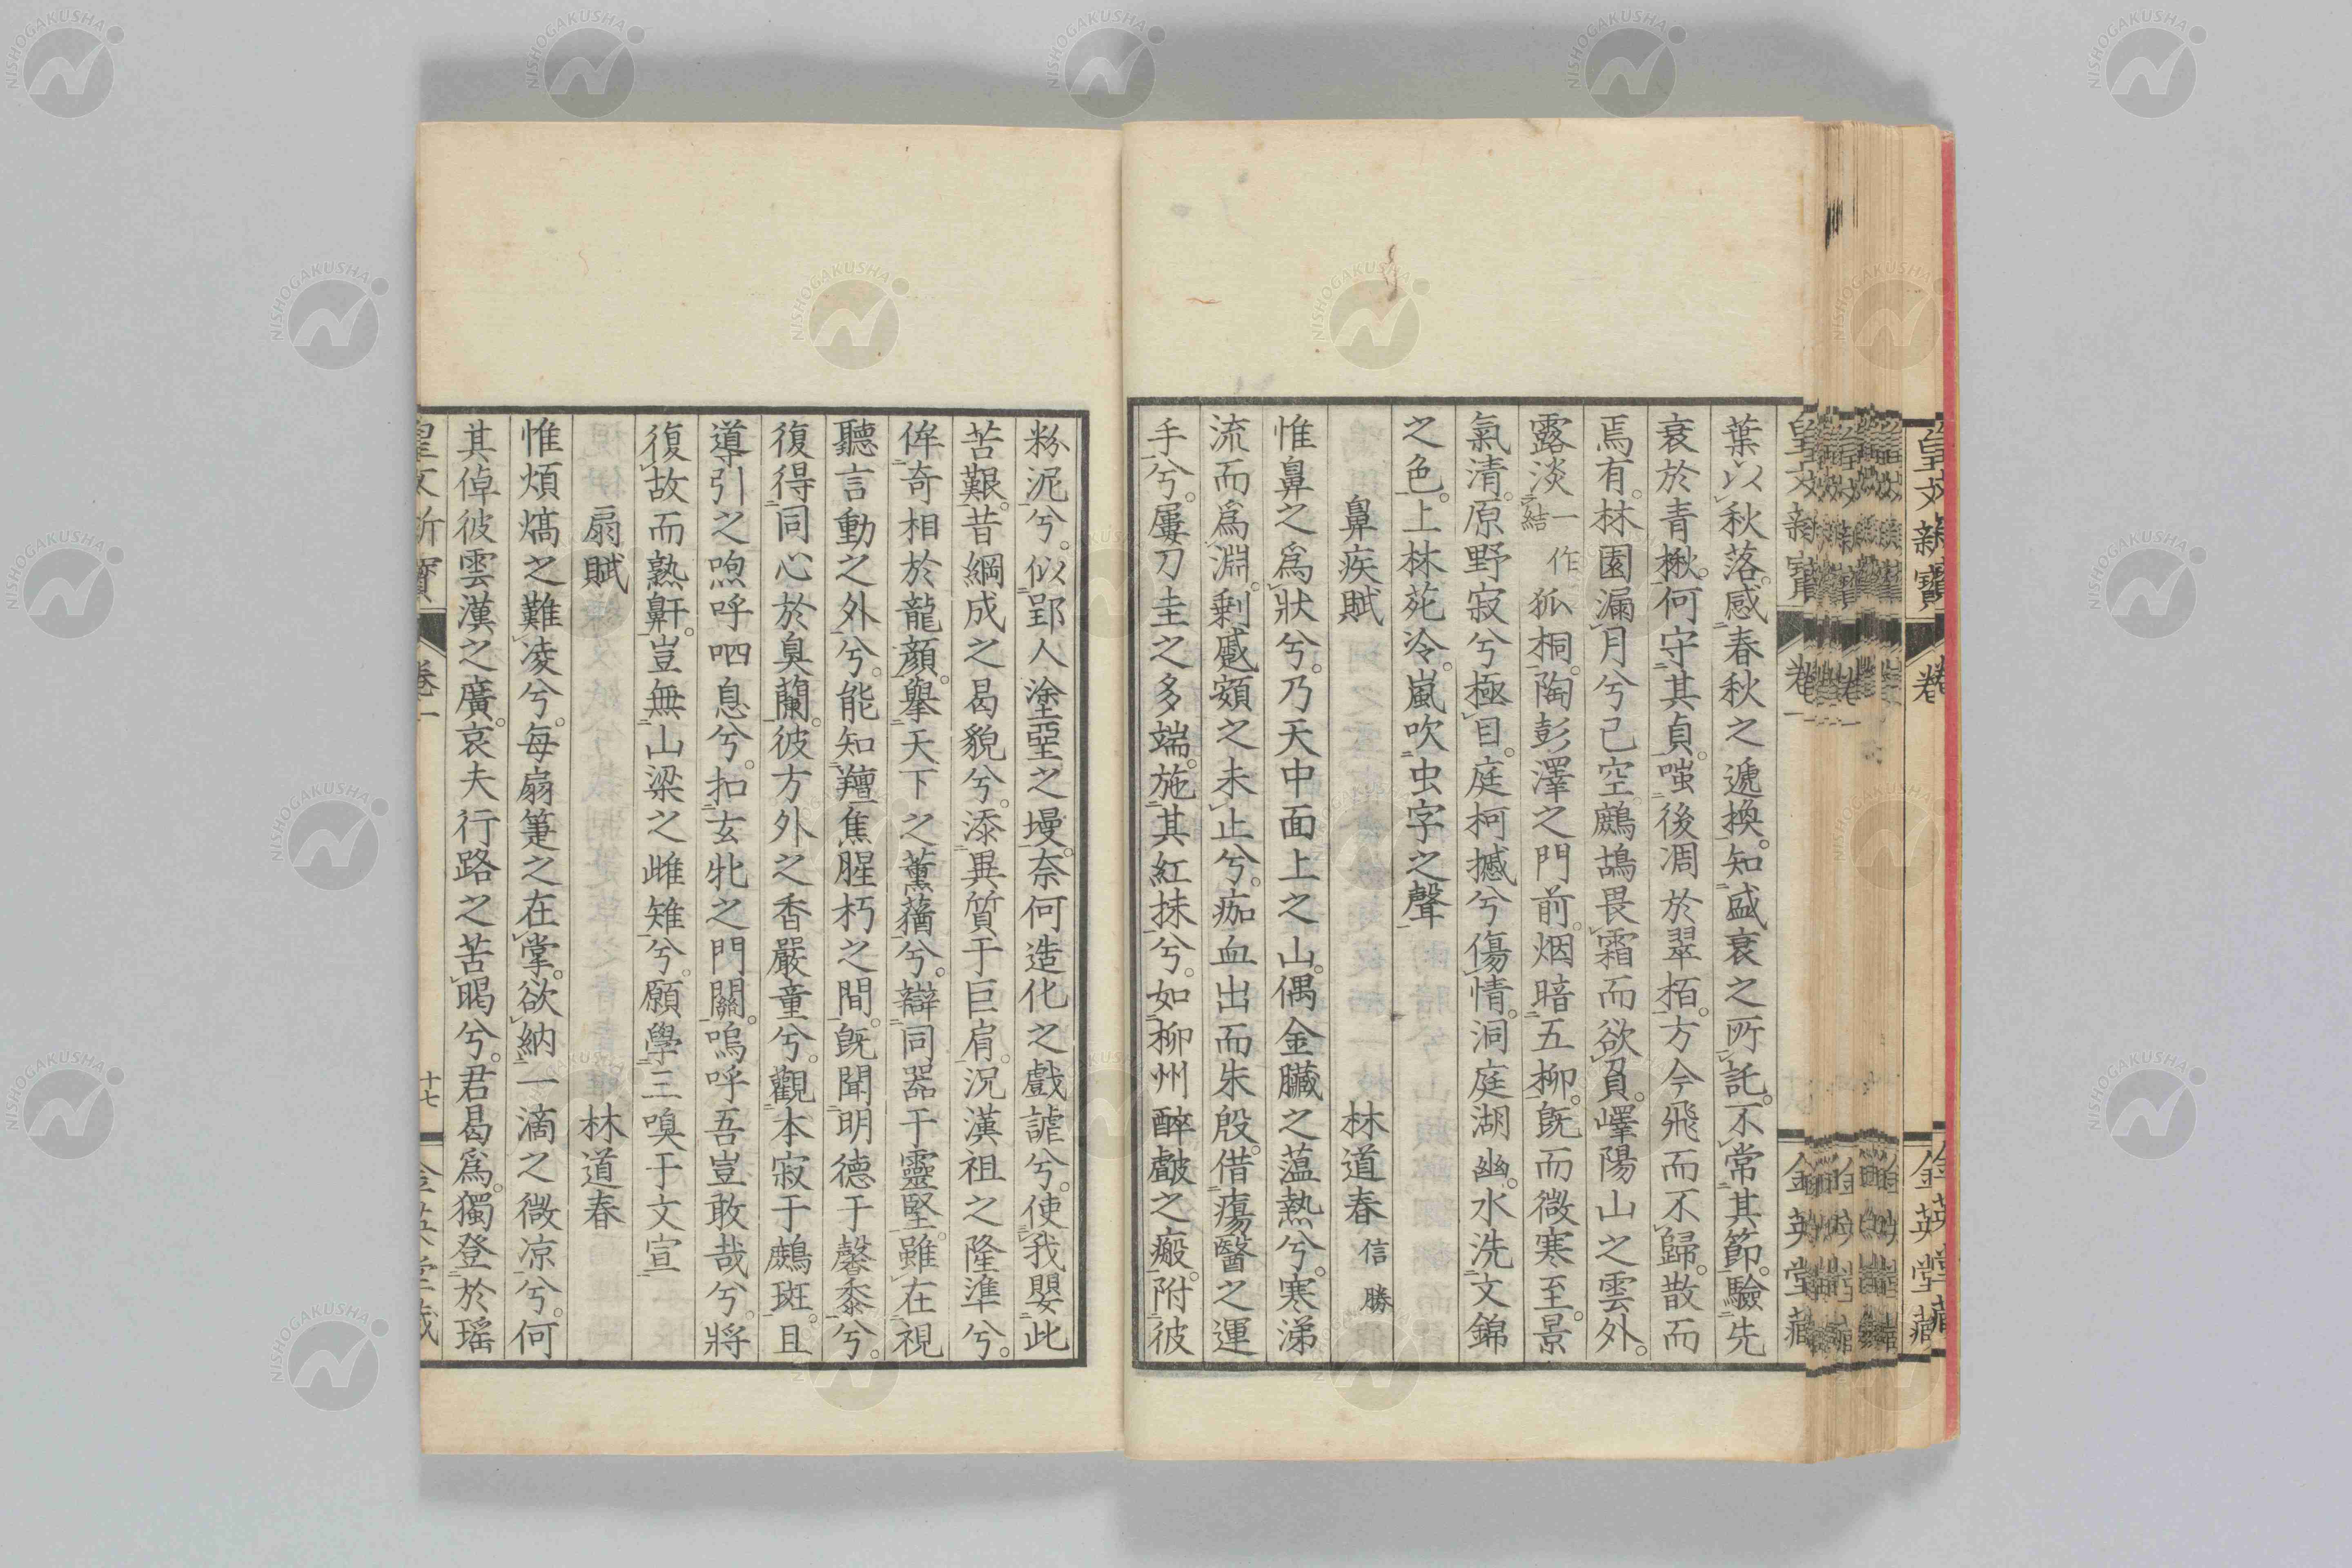 葉以秋落。感春秋之遞換。知盛衰之所託。不常其節。驗先
衰於青楸。何守其貞。嗤後凋於翠栢。方今飛而不歸。散而
焉有。林園漏月兮已空。鷓鴣畏霜而欲負。嶧陽山之雲外。
露淡一作結狐桐。陶彭澤之門前。烟暗五柳。既而微寒至。景
氣清。原野寂兮極目。庭柯撼兮傷情。洞庭湖幽。水洗文錦
之色。上林苑冷。嵐吹虫字之聲
鼻疾賦 林道春信勝
惟鼻之爲狀兮。乃天中面上之山。偶金臟之薀熱兮。寒涕
流而爲淵。剩蹙頞之未止兮。痂血出而朱殷。借瘍醫之運
手兮。屢刀圭之多端。施其紅抹兮。如柳州醉皻之瘢。附彼
粉泥兮。似郢人塗堊之墁。奈何造化之戲謔兮。使我嬰此
苦艱。昔綱成之曷貌兮。添異質于巨肩。況漢祖之隆準兮。
侔奇相於龍顏。擧天下之薰蕕兮。辯同器于靈堅。雖在視
聽言動之外兮。能知羶焦腥朽之間。既聞明德于馨黍兮。
復得同心於臭蘭。彼方外之香嚴童兮。觀本寂于鷓斑。且
導引之喣呼呬息兮。扣玄牝之門關。嗚呼吾豈敢哉兮。將
復故而熟鼾。豈無山梁之雌雉兮。願學三嗅于文宣
扇賦 林道春
惟煩熇之難凌兮。每扇箑之在掌。欲納一滴之微凉兮。何
其倬彼雲漢之廣。哀夫行路之苦暍兮。君曷爲。獨登於瑤
皇文新寶 卷一 十七 金英堂藏
皇文新寶 卷一 金英堂藏
皇文新寶 卷 金英堂藏
NISHOGAKUSHA